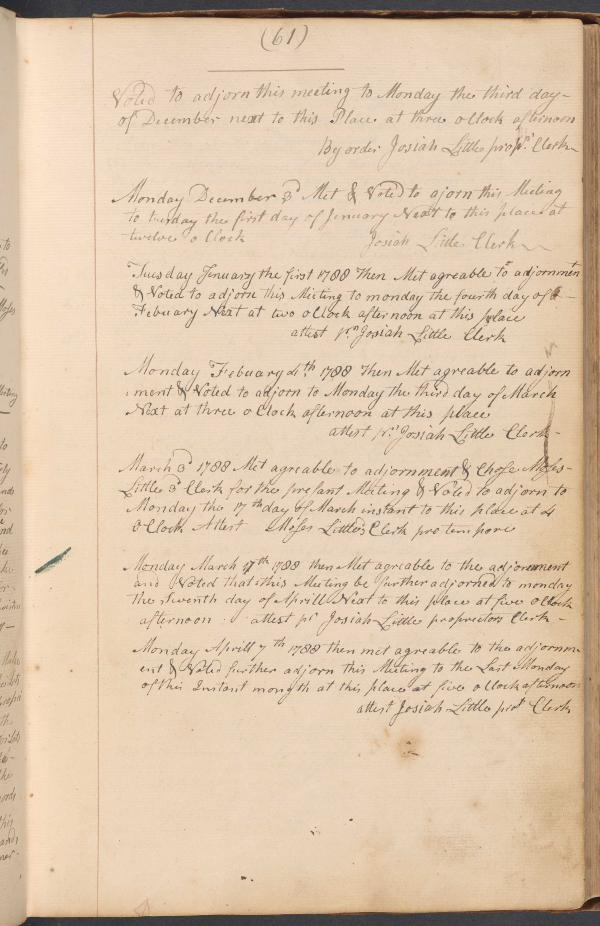 (61)
Voted to adjorn this meeting to Monday the third day
of December next to this Place at three oClock afternoon
By order Josiah Little propr. Clerk
Monday December 3d Met & Voted to ajorn this Meeting
to tuesday the first day of Jenuary Next to this place at
twelve o Clock
Josiah Little Clerk
Tuesday Jenuary the first 1788 then Met agreable to adjornment
& Voted to adjorn this Meeting to monday the fourth day of
Febuary Next at two oClock afternoon at this place
attest pr. Josiah Little Clerk
Monday Febuary 4th 1788 then Met agreable to adjorn
ment & Voted to adjorn to Monday the third day of March
Next at three o Clock afternoon at this place
attest pr. Josiah Little Clerk
March 3d 1788 Met agreable to adjornment & Chose Moses
Little 3d Clerk for the presant Meeting & Voted to adjorn to
Monday the 17th day of March instant to this place at 4
o Clock Attest Moses Little 3 Clerk pro tempore
Monday March 17th 1788 then Met agreable to the adjornment
and Voted that this Meting be further adjorned to monday
the seventh day of Aprill Next to this place at five oClock
afternoon : attest pr Josiah Little propriators Clerk
Monday Aprill 7th 1788 then met agreable to the adjornm
ent & Voted further adjorn this Meeting to the Last Monday
of this Instant month at this place at five oClock afternoon
attest Josiah Little propr Clerk